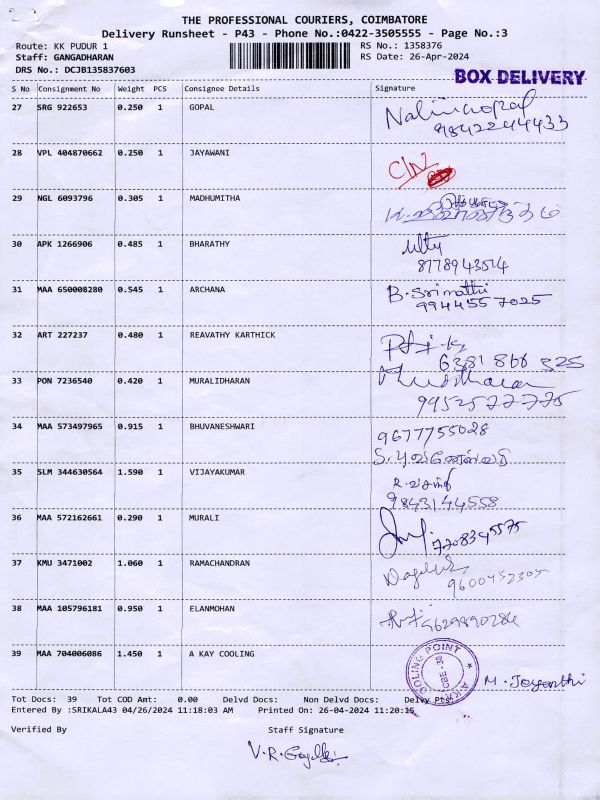 THE PROFESSIONAL COURIERS, COIMBATORE
Delivery Runsheet - P43 - Phone No.:0422-3505555 - Page No.:3
Route: KK PUDUR 1 RS No.: 1358376
Staff: GANGADHARAN RS Date: 26-Apr-2024
DRS No.: DCJB135837603
BOX DELIVERY
S No Consignment No Weight PCS Consignee Details Signature
27 SRG 922653 0.250 1 GOPAL
9842244433
28 VPL 404870662 0.250 1 JAYAWANI
29 NGL 6093796 0.305 1 MADHUMITHA
30 APK 1266906 0.485 1 BHARATHY
8778943514
31 MAA 650008280 0.545 1 ARCHANA B. Srimathi
9944557025
32 ART 227237 0.480 1 REAVATHY KARTHICK
6381 866 325
33 PON 7236540 0.420 1 MURALIDHARAN
34 MAA 573497965 0.915 1 BHUVANESHWARI 9677755028
S. புவனேஸ்வரி
35 SLM 344630564 1.590 1 VIJAYAKUMAR
9843144558
36 MAA 572162661 0.290 1 MURALI
7708345575
37 KMU 3471002 1.060 1 RAMACHANDRAN
9600452305
38 MAA 105796181 0.950 1 ELANMOHAN
9629890286
39 MAA 704006086 1.450 1 A KAY COOLING
M. Jayanthi
Tot Docs: 39 Tot COD Amt: 0.00 Delvd Docs: Non Delvd Docs: Delvy Pts:
Entered By :SRIKALA43 04/26/2024 11:18:03 AM Printed On: 26-04-2024 11:20:15
Verified By Staff Signature